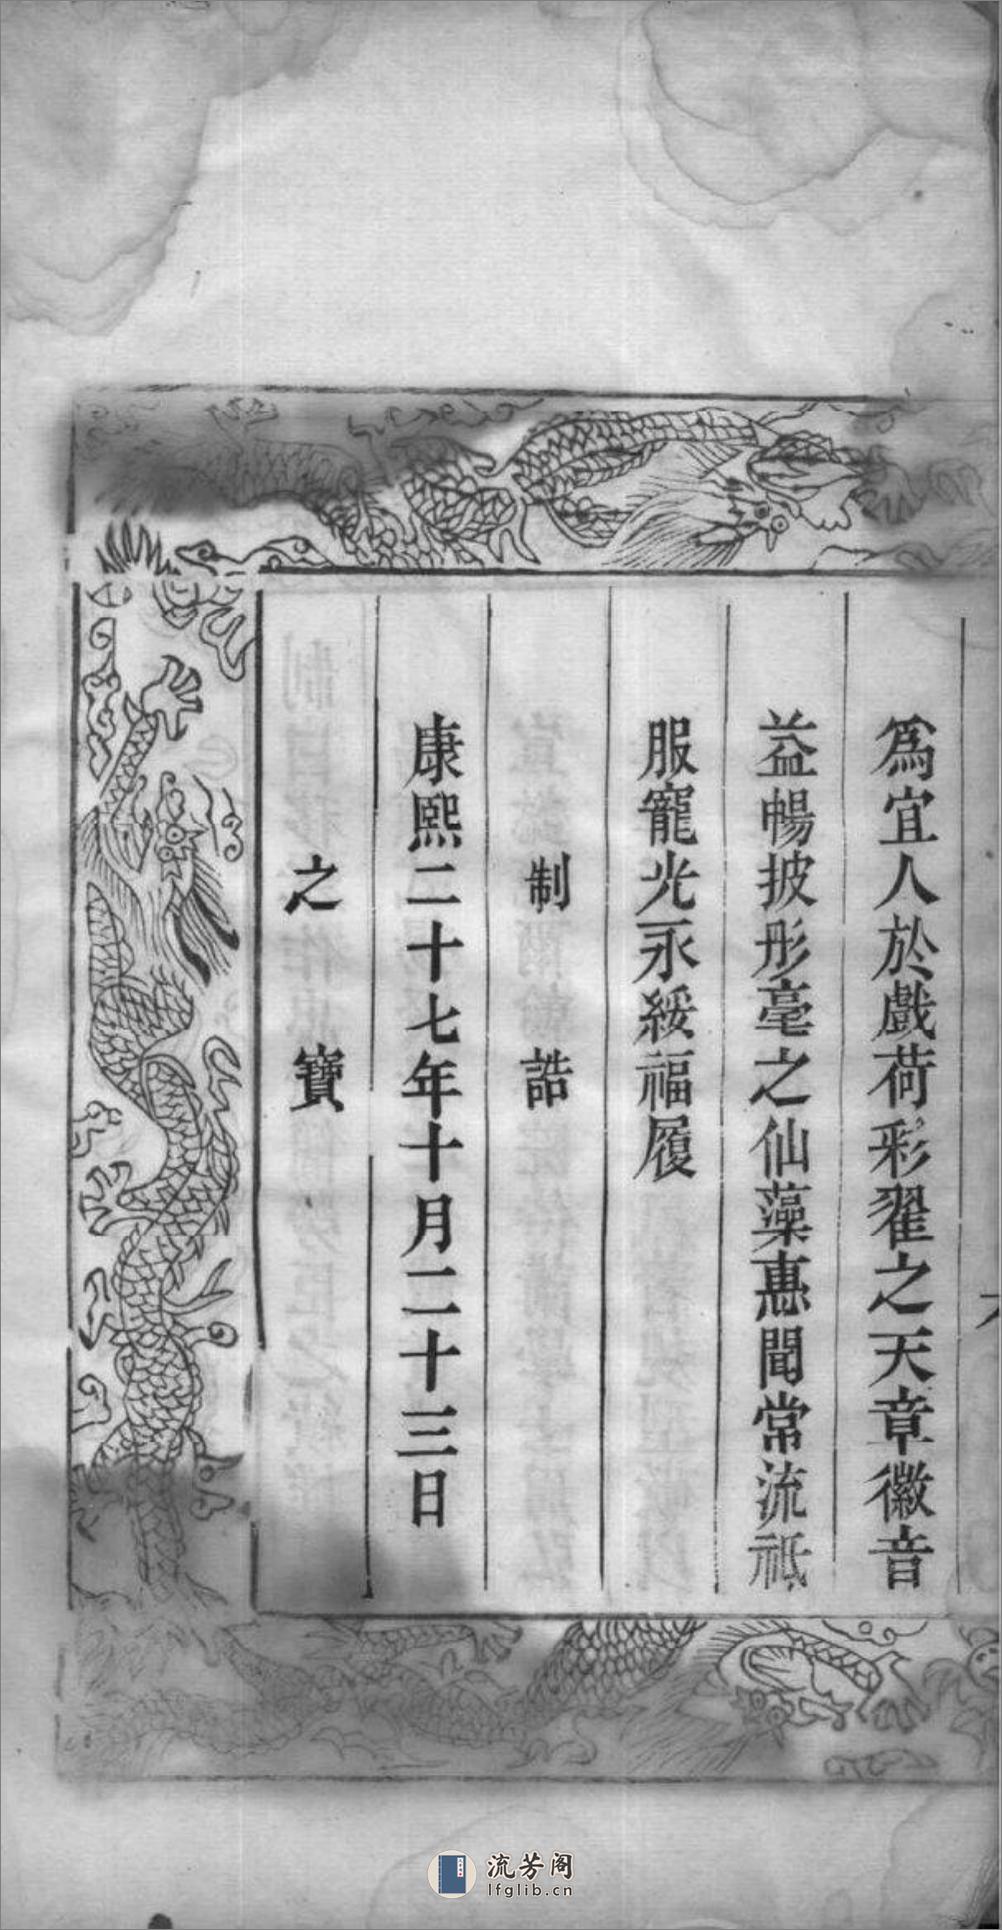 為宜人於戲荷彩翟之天章徽音
益暢披彤毫之仙藻惠聞常流祗
服寵光永綏福履
制誥
康熙二十七年十月二十三日
之寶
流芳阁
lfglib.cn